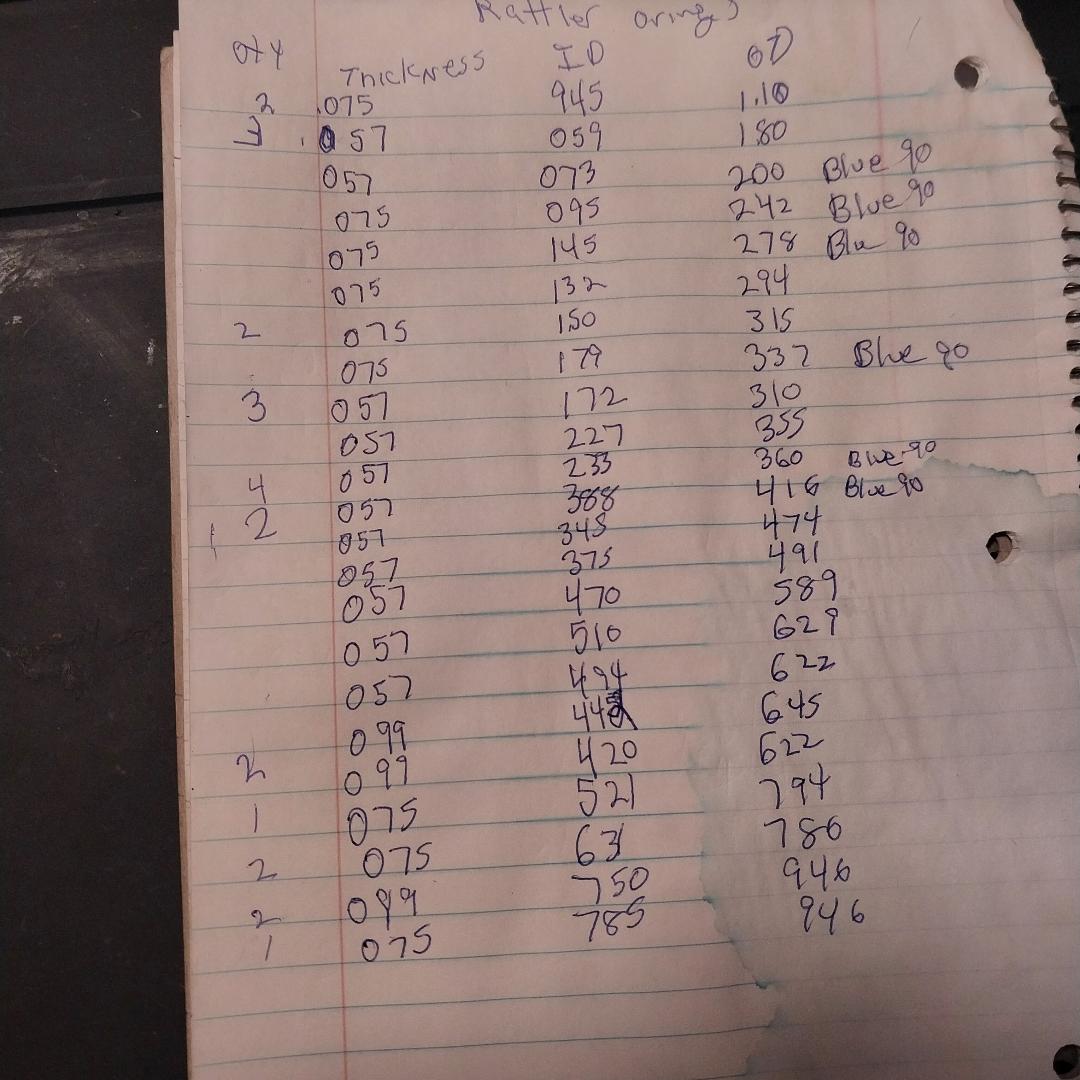 Rattler orings
QTY Thickness ID OD
2 .075 945 1.10
3 .057 059 180
057 073 200 Blue 90
075 095 242 Blue 90
075 145 278 Blu 90
075 132 294
2 075 150 315
075 179 337 Blue 90
3 057 172 310
057 227 355
057 233 360 Blue 90
4 057 388 416 Blue 90
2 057 345 474
057 375 491
057 470 589
057 510 629
057 494 622
099 645
2 099 420 622
1 075 521 794
2 075 631 786
2 099 750 946
1 075 785 946